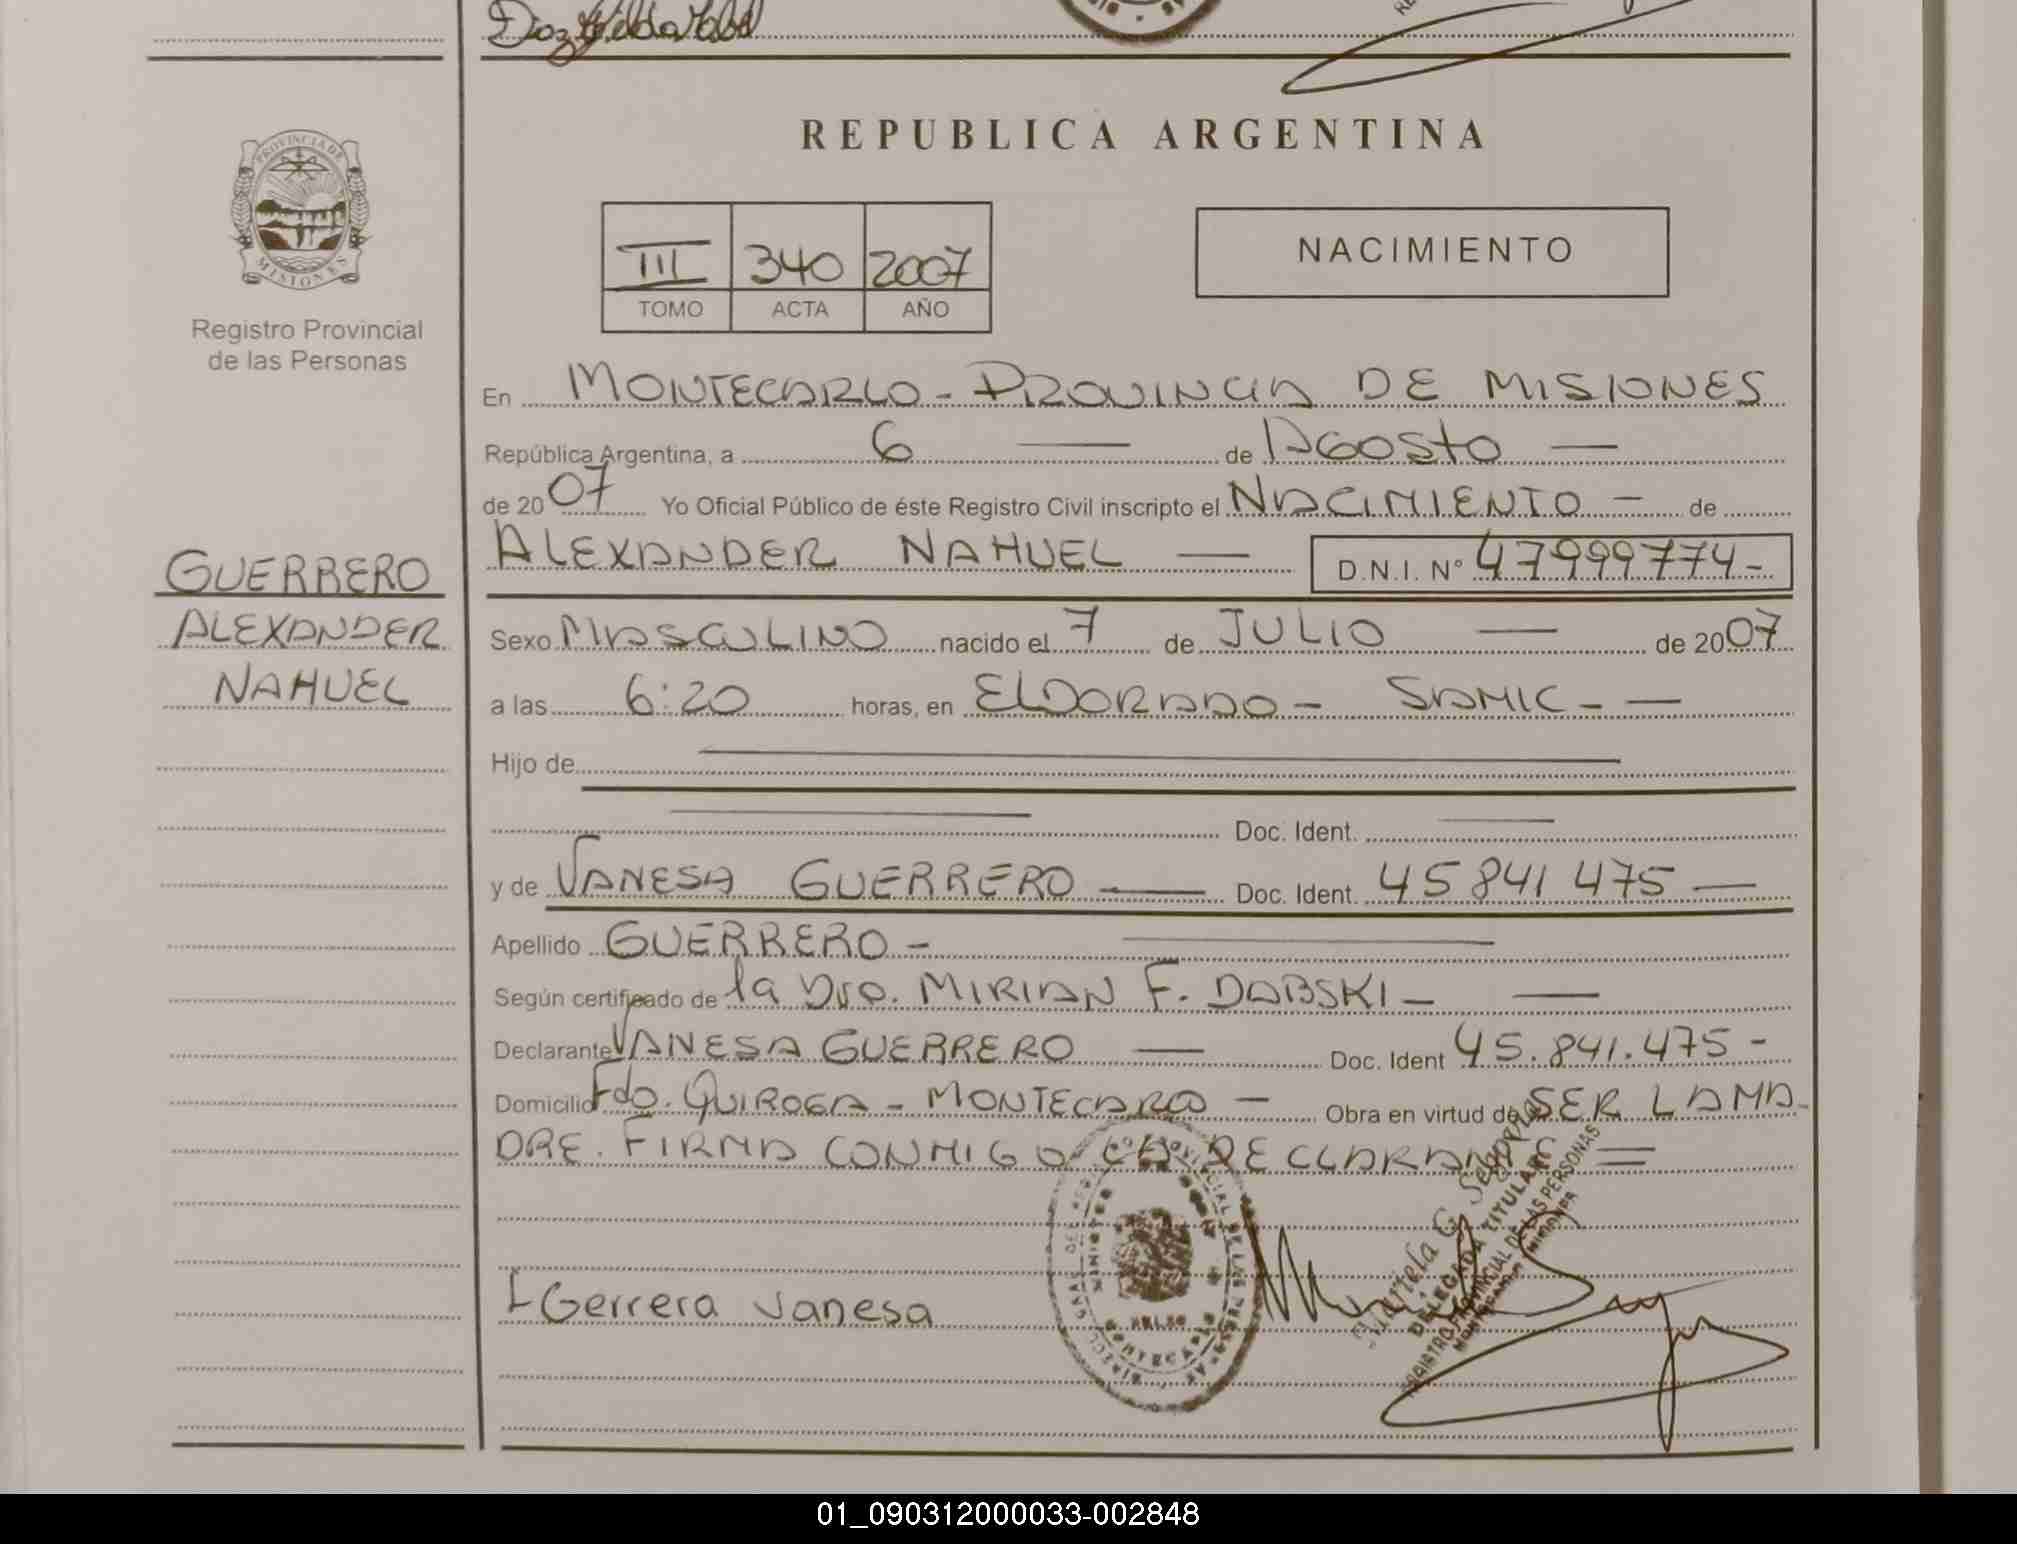 Diaz Hilda Mabel
REPUBLICA ARGENTINA
PROVINCIA DE
MISIONES
Registro Provincial
de las Personas
III 340 2007
TOMO ACTA AÑO
NACIMIENTO
En MONTECARLO - PROVINCIA DE MISIONES
República Argentina, a 6 — de AGOSTO —
de 2007 Yo Oficial Público de éste Registro Civil inscripto el NACIMIENTO — de
ALEXANDER NAHUEL — D.N.I. N° 47999774-
GUERRERO
ALEXANDER
NAHUEL
Sexo MASCULINO nacido el 7 de JULIO — de 2007
a las 6:20 horas, en ELDORADO - SAMIC - —
Hijo de —
— Doc. Ident. —
y de VANESA GUERRERO — Doc. Ident. 45 841 475 —
Apellido GUERRERO - —
Según certificado de la Dra. MIRIAN F. DABSKI - —
Declarante VANESA GUERRERO — Doc. Ident 45.841.475 -
Domicilio Fdo. QUIROGA - MONTECARLO — Obra en virtud de SER LA MA-
DRE. FIRMA CONMIGO LA DECLARANTE =
DELEGADA TITULAR
REGISTRO PROVINCIAL DE LAS PERSONAS
Gerrera Vanesa
01_090312000033-002848